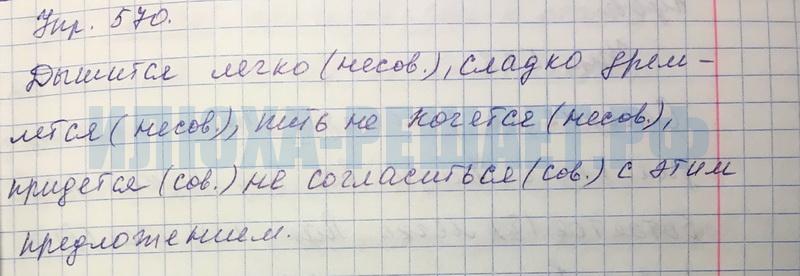 Упр. 570.
Дышится легко (несов.), сладко дрем-
лется (несов.), пить не хочется (несов.),
ИЛЮХА-РЕШАЕТ.РФ
придется (сов.) не согласиться (сов.) с этим
предложением.